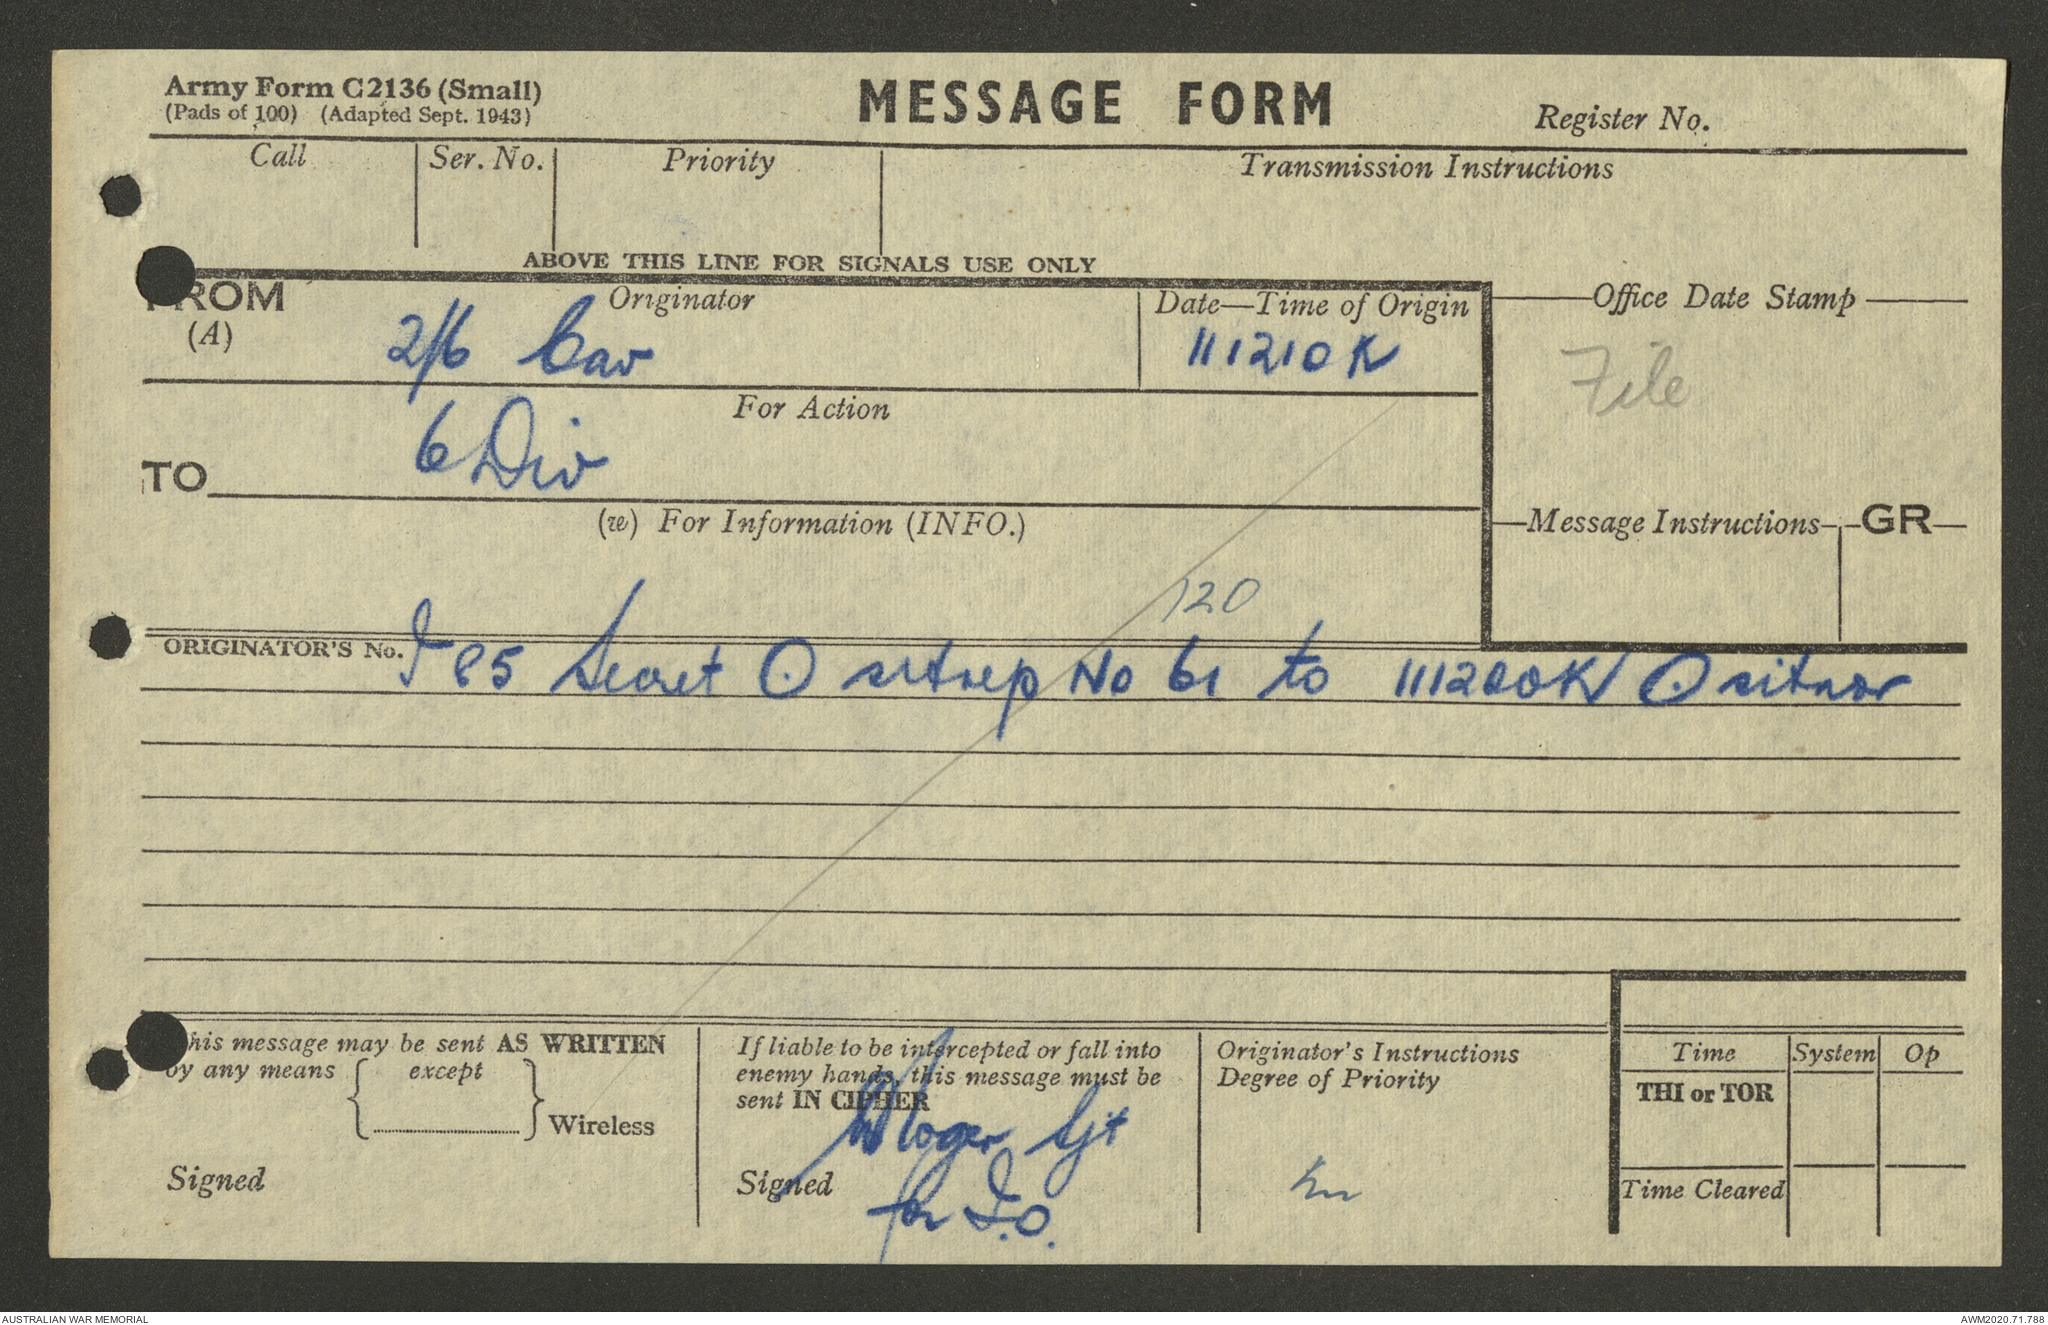 Army Form C2136 (Small)
(Pads of 100) (Adapted Sept. 1943)
MESSAGE FORM
Register No.
Call
Ser. No.
Priority
Transmission Instructions
ABOVE THIS LINE FOR SIGNALS USE ONLY
FROM
(A)
Originator
2/6 Cav
Date—Time of Origin
111210K
Office Date Stamp
File
For Action
TO
6 Div
(w) For Information (INFO.)
Message Instructions
GR
120
ORIGINATOR'S No.
I 85 Secret O sitrep No 61 to 111200K O sitnor
This message may be sent AS WRITTEN
by any means
except
Wireless
Signed
If liable to be intercepted or fall into
enemy hands, this message must be
sent IN CIPHER
Sjt
Signed
for I.O.
Originator's Instructions
Degree of Priority
Time
System
Op
THI or TOR
Time Cleared
AUSTRALIAN WAR MEMORIAL
AWM2020.71.788